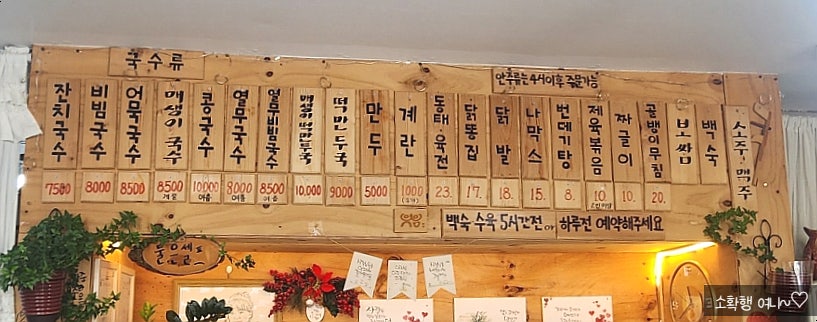 국수류
안주류는 4시이후 주문가능
잔치국수 7500
비빔국수 8000
어묵국수 8500
매생이 국수 8500 계절
콩국수 10000 여름
열무국수 8000 여름
열무비빔국수 8500 여름
매생이떡만두국 10,000
떡만두국 9000
만두 5000
계란 1000
동태 육전 23.
닭똥집 17.
닭발 18.
나막스 15.
번데기탕 8.
제육볶음 10
짜글이 10.
골뱅이무침 20.
보쌈
백숙
소주·맥주
백숙 수육 5시간전 or 하루전 예약해주세요
소확행 여나~♡